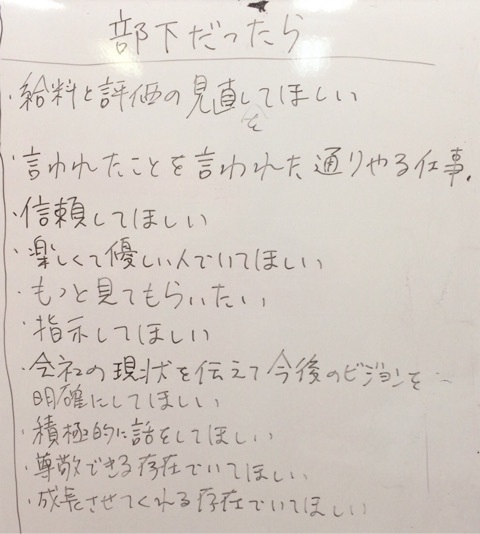 部下だったら
・給料と評価の見直しをしてほしい
・言われたことを言われた通りやる仕事.
・信頼してほしい
・楽しくて優しい人でいてほしい
・もっと見てもらいたい
・指示してほしい
・会社の現状を伝えて今後のビジョンを…
明確にしてほしい
・積極的に話をしてほしい
・尊敬できる存在でいてほしい
・成長させてくれる存在でいてほしい